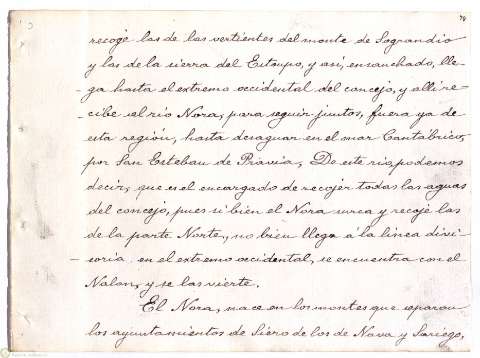 recoge las de las vertientes del monte de Sograndio
y las de la sierra del Estampo, y así, ensanchado, lle-
ga hasta el extremo occidental del concejo, y alli re-
cibe el río Nora, para seguir juntos, fuera ya de
esta región, hasta desaguar en el mar Cantábrico,
por San Esteban de Pravia. De este rio, podemos
decir, que es el encargado de recojer todas las aguas
del concejo, pues si bien el Nora surca y recoje las
de la parte Norte, no bien llega á la linea divi-
soria en el extremo occidental, se encuentra con el
Nalon, y se las vierte.
El Nora, nace en los montes que separan
los ayuntamientos de Siero de los de Nava y Sariego,